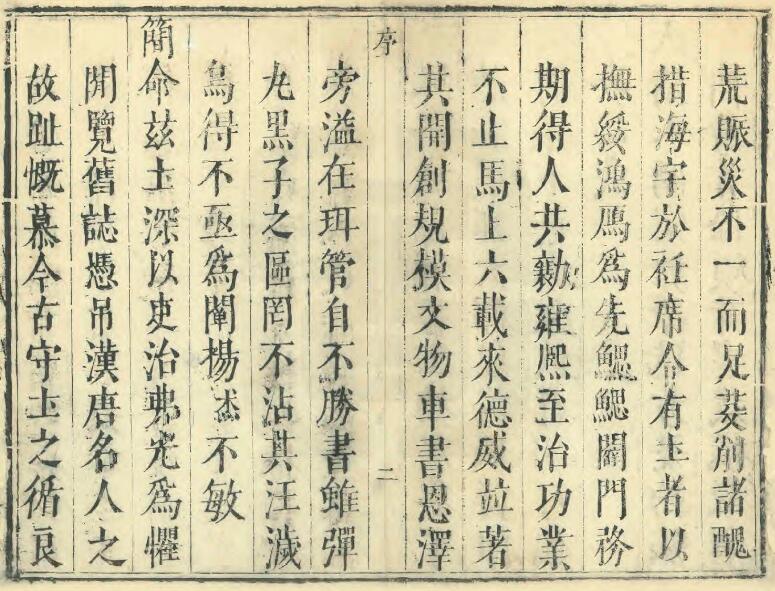 荒賑災不一而足芟削諸醜
措海宇於衽席令有土者以
撫綏鴻雁爲先鰓鰓闢門務
期得人共勷雍熙至治功業
不止馬上六載來德威並著
其開創規模文物車書恩澤
序
二
旁溢在珥管自不勝書雖彈
丸黑子之區罔不沾其汪濊
烏得不亟爲闡揚
不敏
簡命茲土深以吏治弗光爲懼
閒覽舊誌憑吊漢唐名人之
故趾慨慕今古守土之循良